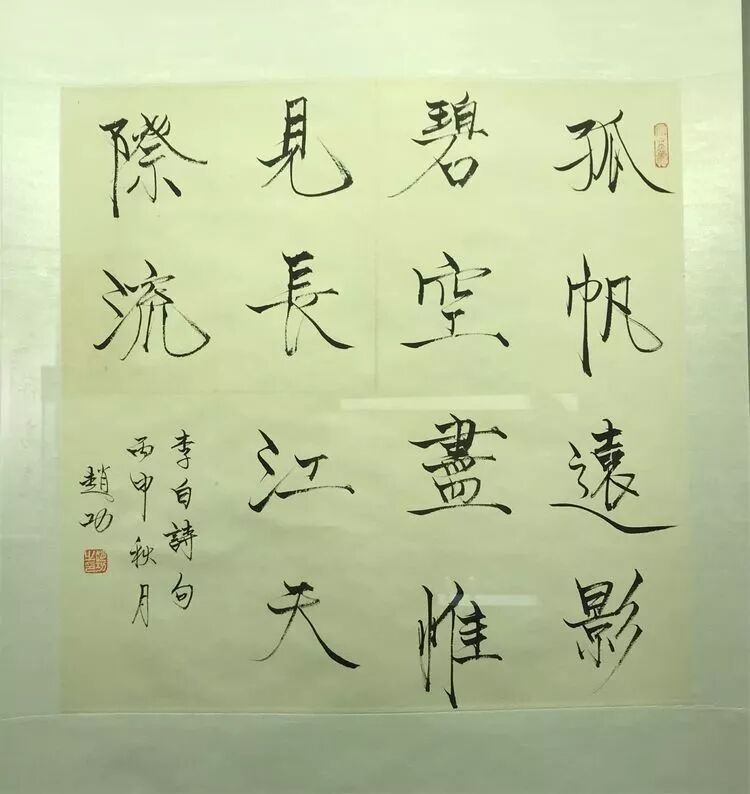 孤帆遠影
碧空盡惟
見長江天
際流
李白詩句
丙申秋月
趙功